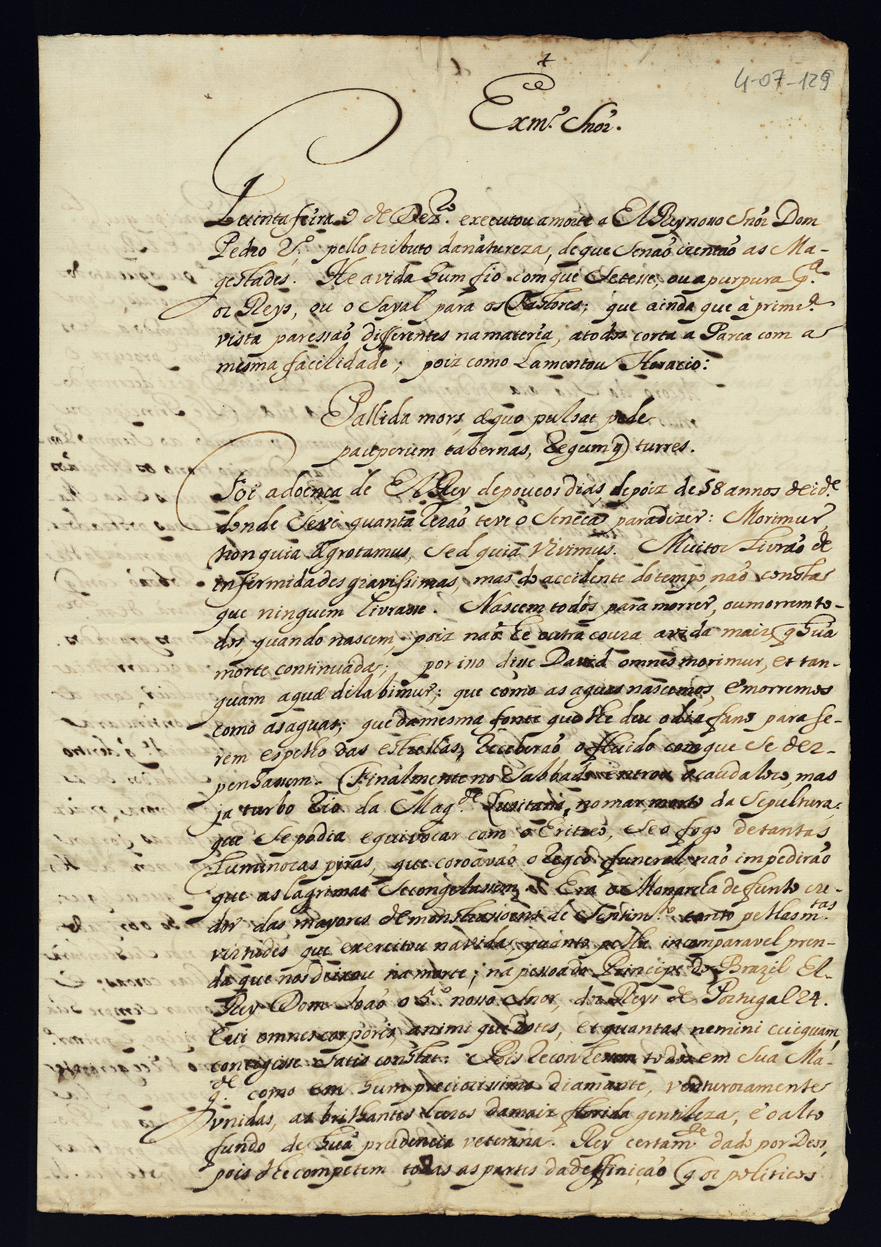 4-07-129
+
Exmo. Snõr.
Quinta feira 9 de Dezro. executou a morte a El Rey nosso Snõr Dom
Pedro 2.º pello tributo da natureza, de que se não izentão as Ma-
gestades. He a vida hum fio com que se tesse, ou a purpura pa.
os Reys, ou o Sayal para os Pastores; que ainda que à primra.
vista paressão differentes na materia, a todos corta a Parca com a
misma facilidade; poiz como Lamentou Horacio:
Pallida mors æquo pulsat pede
pauperum tabernas, Regumq) turres.
Foi a doença de El Rey de poucos dias, depoiz de 58 annos de ide.
donde se vê quanta rezão teve o Seneca para dizer: Morimur,
non quia ægrotamus, sed quia vivimus. Muitos Livrão de
infermidades gravissimas, mas do accidente do tempo não consta
que ninguem livrasse. Nascem todos para morrer, ou morrem to-
dos quando nascem poiz não he outra couza a vida mais q hũa
morte continuada; por isso disse David omnes morimur, et tan-
quam aquæ dilabimur; que como as aguas nascemos, e morremos
como as aguas; que da mesma fonte que lhe deu o diafano para se-
rem espelho das estrellas, receberão o fluido com que se dez-
penhassem. Finalmente no Sabbado entrou o caudalozo, mas
ja turbo Rio da Magde. Luzitana, no mar morto da Sepultura,
que se podia equivocar com o Eritreo, se o fogo de tantas
Luminozas pyras, que coroavão o Regio funeral não impedirão
que as lagrimas se congelassem. Era o Monarcha defunto cre-
dor das mayores demonstrasoens de Sentimto. tanto pellas mtas.
virtudes que exercitou na vida, quanto pella incomparavel pren-
da que nos deixou na morte; na pessoa do Principe do Brazil El-
Rey Dom João o 5.º nosso Snor, dos Reys de Portugal 24.
Cui omnes corporis, animi que dotes, et quantas nemini cuiquam
contigisse satis constat: Pois reconhessem todos em Sua Ma-
gde. como em hum preciozissimo diamante, venturozamente
unidas, as brilhantes luzes da mais florida gentileza, e o alto
fundo de hũa prudencia veterana. Rey certamte. dado por Deos,
pois lhe competem todas as partes da deffinição q os politicos